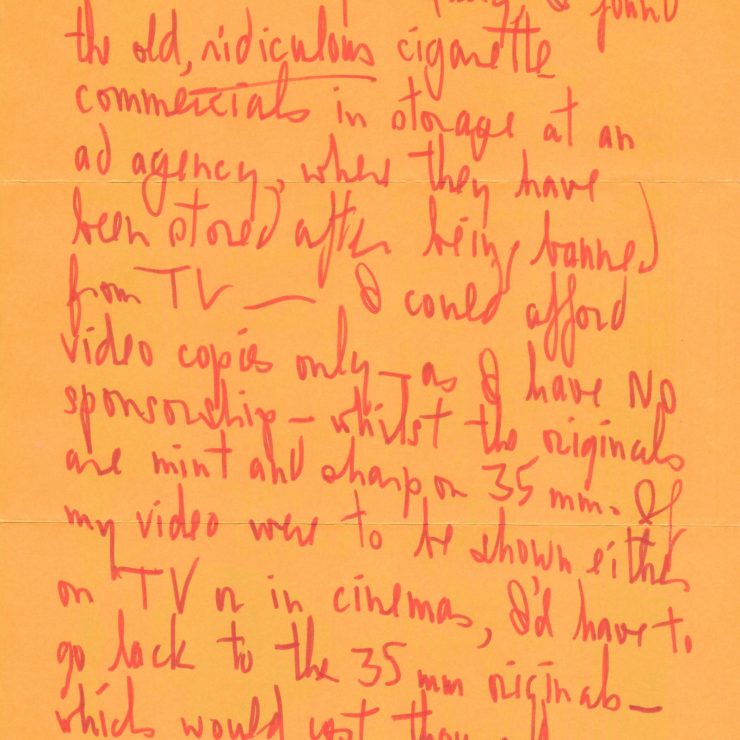 I found
the old, ridiculous cigarette
commercials in storage at an
ad agency, where they have
been stored after being banned
from TV — I could afford
video copies only — as I have NO
sponsorship — whilst the originals
are mint and sharp on 35 mm. If
my video were to be shown either
on TV or in cinemas, I'd have to
go back to the 35 mm originals —
which would cost